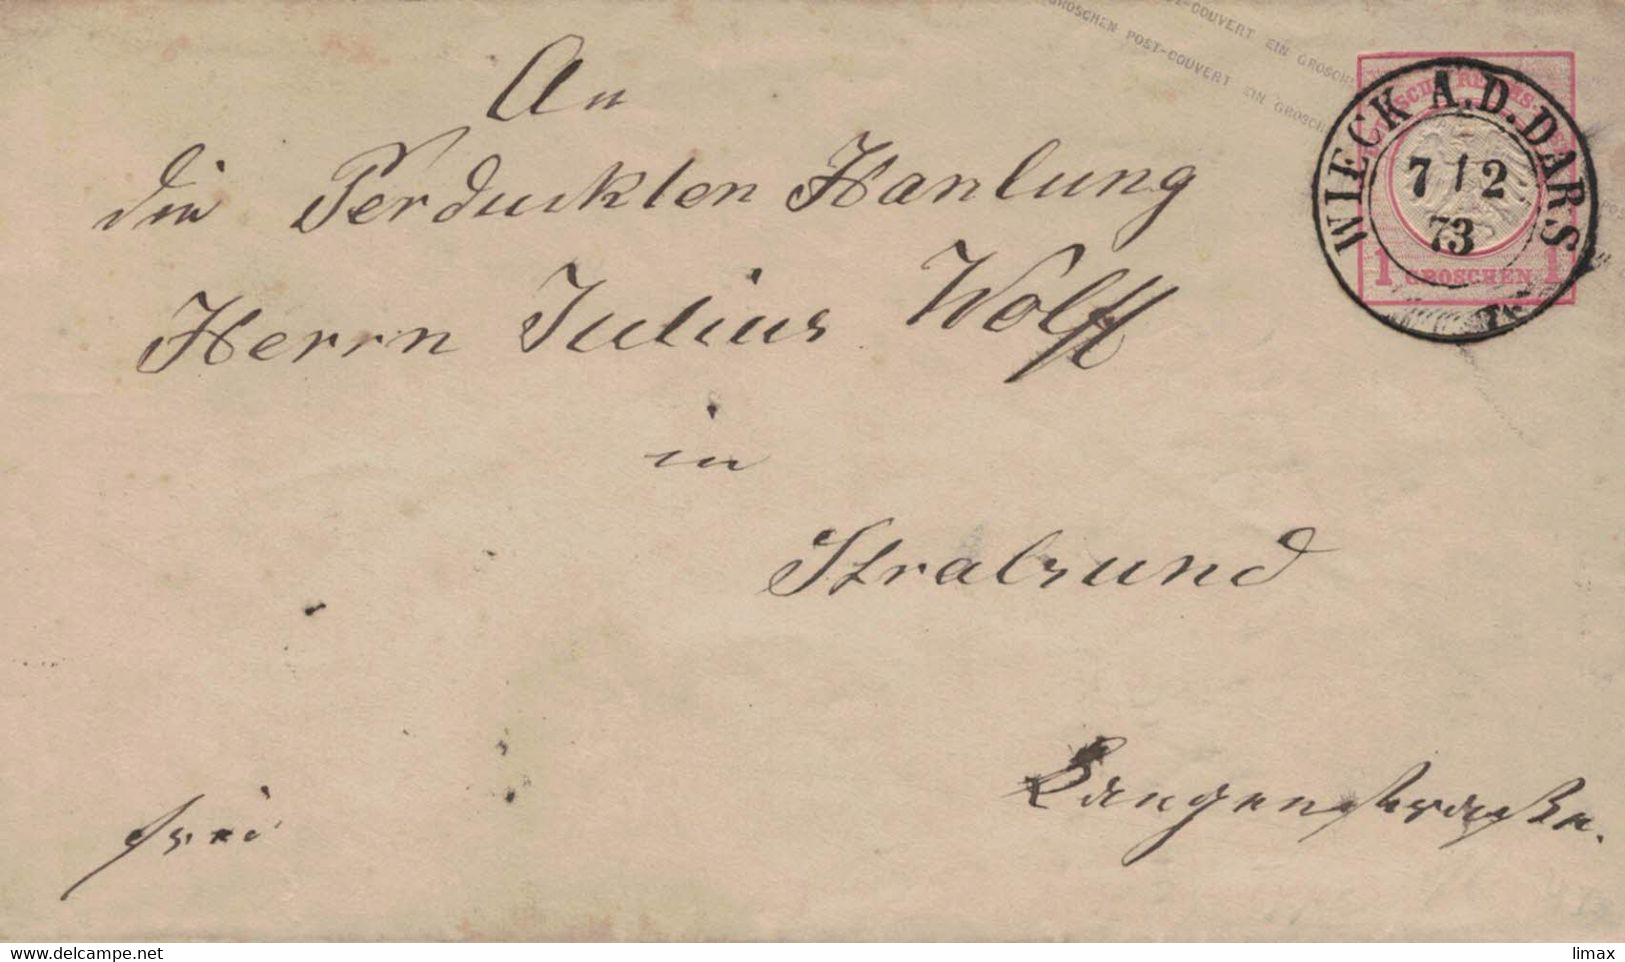 POST-COUVERT EIN GROSCHEN
GROSCHEN POST-COUVERT EIN GROSCHEN
WIECK A.D. DARS
7/2
73
1 GROSCHEN 1
An
die Perduckten Hanlung
Herrn Julius Wolff
in
Stralsund
Langenstraße.
frei
www.delcampe.net
limax